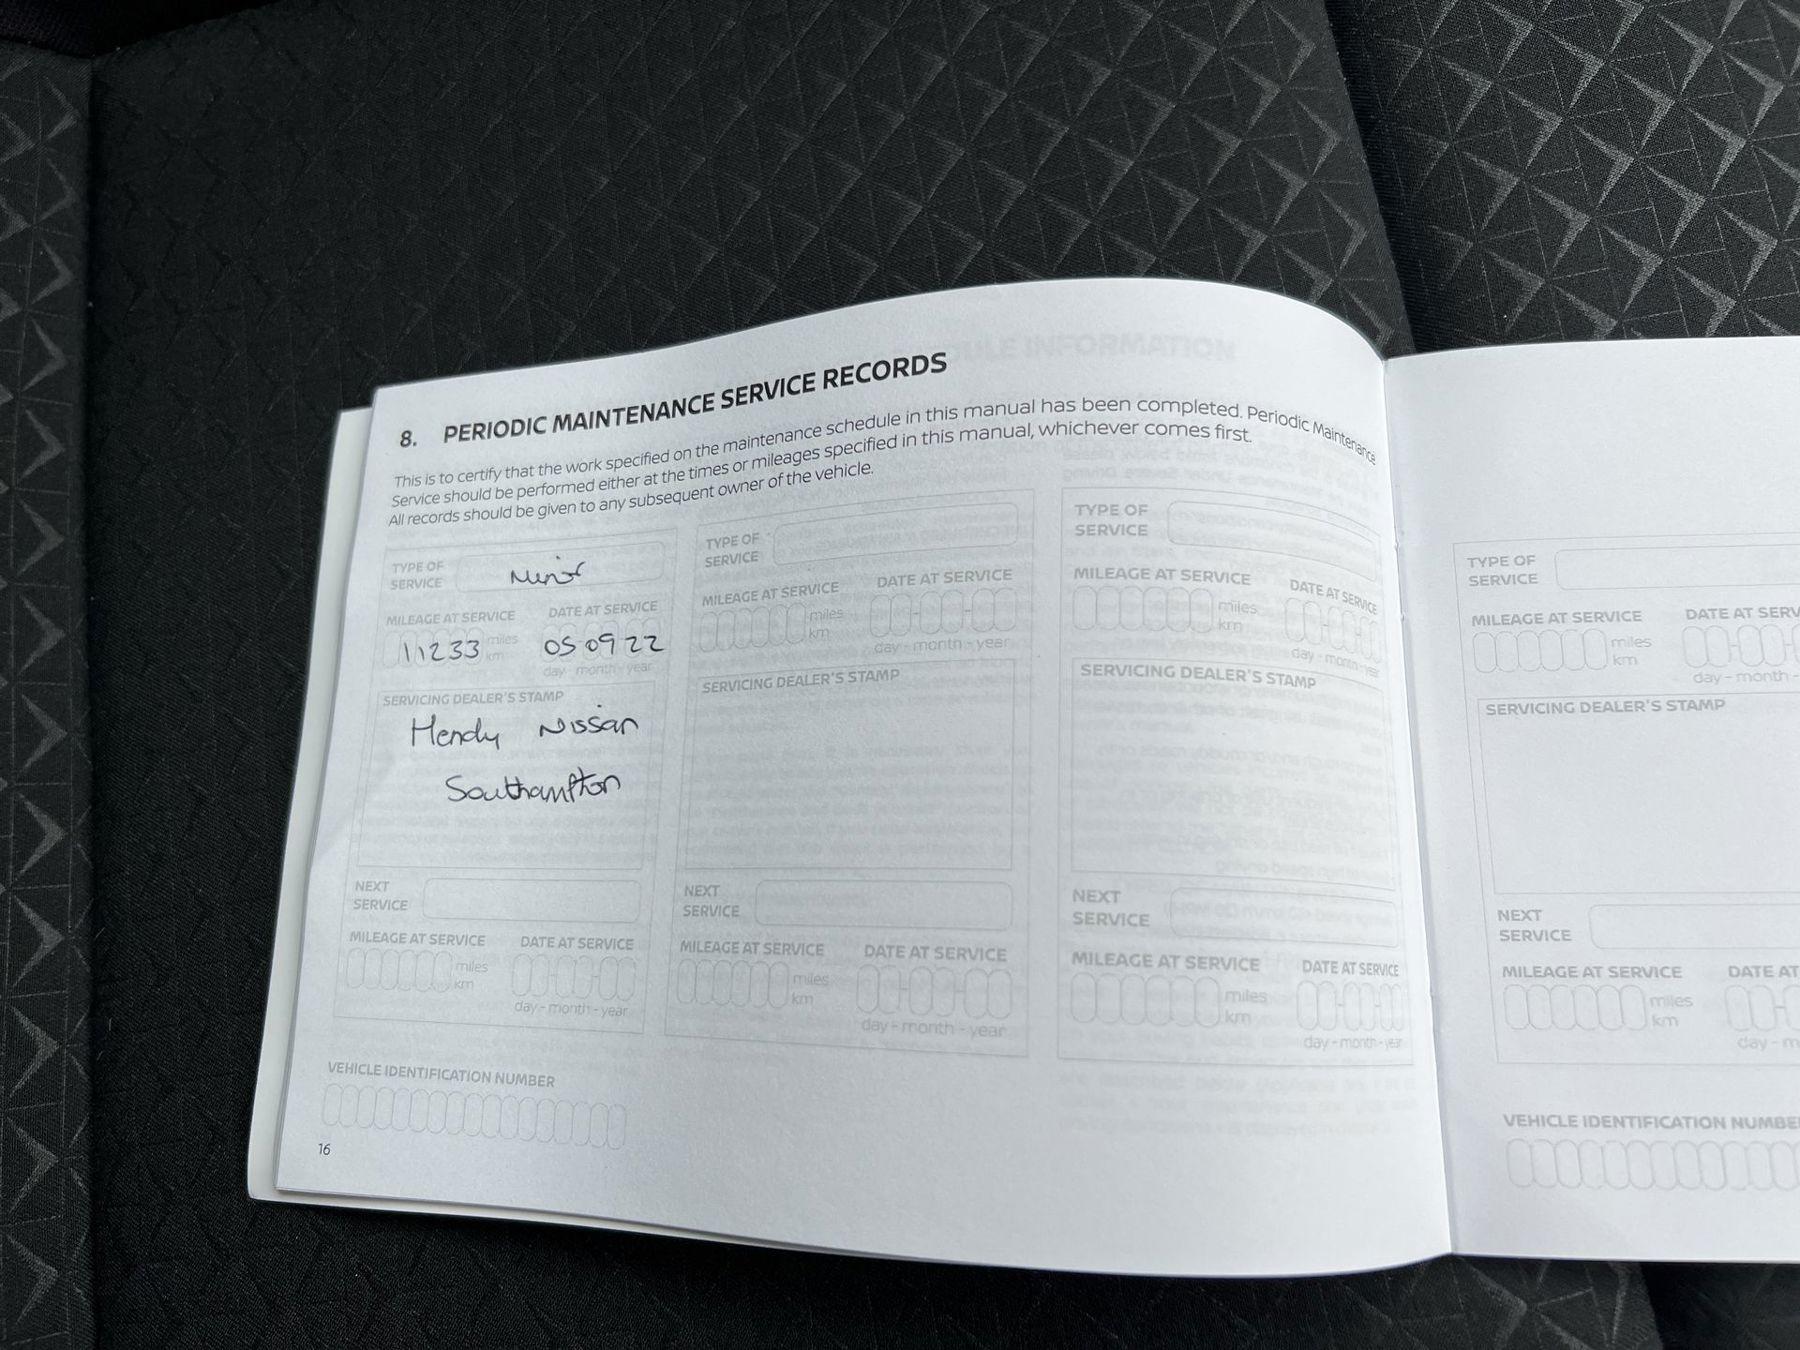 8. PERIODIC MAINTENANCE SERVICE RECORDS
This is to certify that the work specified on the maintenance schedule in this manual has been completed. Periodic Maintenance
Service should be performed either at the times or mileages specified in this manual, whichever comes first.
All records should be given to any subsequent owner of the vehicle.
TYPE OF
SERVICE
Minor
MILEAGE AT SERVICE DATE AT SERVICE
11233 miles 05 09 22
km
day - month - year
SERVICING DEALER'S STAMP
Hendy Nissan
Southampton
NEXT
SERVICE
MILEAGE AT SERVICE DATE AT SERVICE
miles
km
day - month - year
TYPE OF
SERVICE
MILEAGE AT SERVICE DATE AT SERVICE
miles
km
day - month - year
SERVICING DEALER'S STAMP
NEXT
SERVICE
MILEAGE AT SERVICE DATE AT SERVICE
miles
km
day - month - year
TYPE OF
SERVICE
MILEAGE AT SERVICE DATE AT SERVICE
miles
km
day - month - year
SERVICING DEALER'S STAMP
NEXT
SERVICE
MILEAGE AT SERVICE DATE AT SERVICE
miles
km
day - month - year
VEHICLE IDENTIFICATION NUMBER
16
TYPE OF
SERVICE
MILEAGE AT SERVICE DATE AT SERV
miles
km
day - month -
SERVICING DEALER'S STAMP
NEXT
SERVICE
MILEAGE AT SERVICE DATE AT
miles
km
day - m
VEHICLE IDENTIFICATION NUMBE